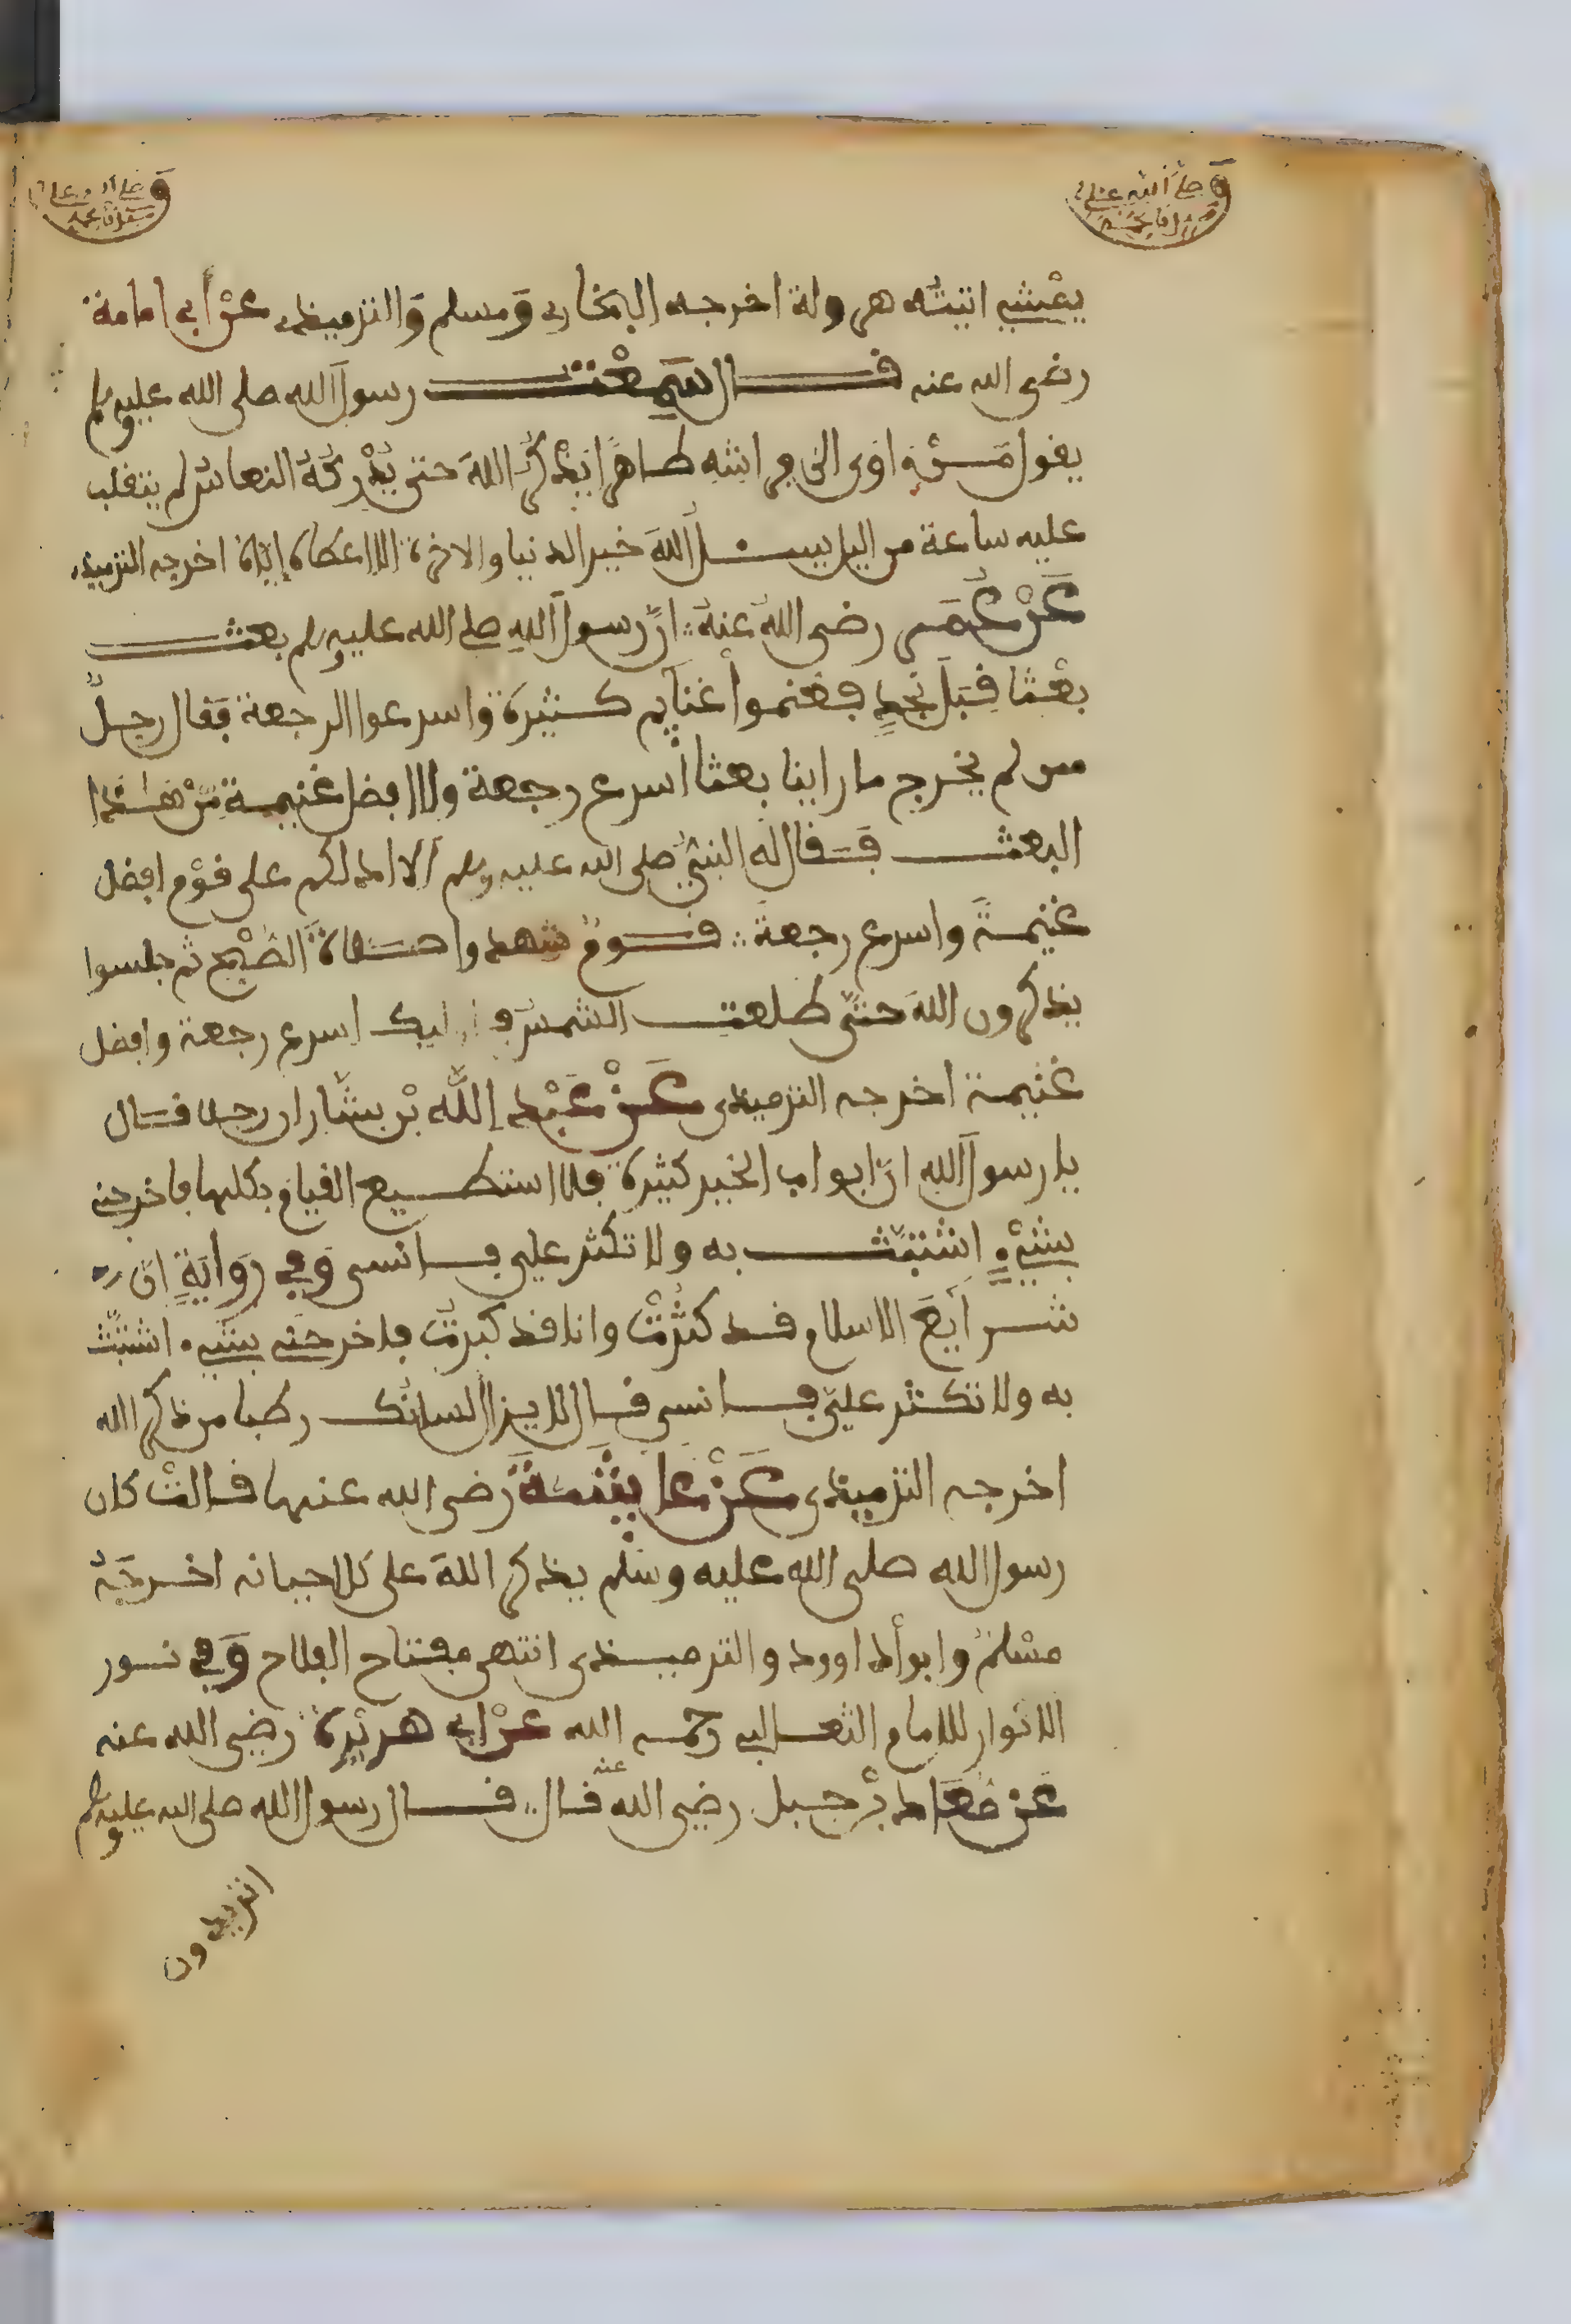 صلى الله على
يمشي اتيته هرولة اخرجه البخاري وَمسلم وَالترميذي عَنْ أبي امامة
رضي الله عنه قال سَمِعْتُ رسولَ الله صلى الله عليه وسلم
يقول مَن اوى الى فراشه طاهرًا يذكُرُ اللهَ حتى يُدْرِكَهُ النعاسُ لم يتقلب
عليه ساعة من اليل يسئلُ اللهَ خير الدنيا والاخرة الا اعطاه إيّاهُ اخرجه الترميذي
عَنْ عُمَر رضي اللهُ عنهُ انّ رسولَ اللهِ صلى الله عليه وسلم بعث
بعْثًا قِبَلَ نجدٍ فغنموا غنايم كثيرةً وَاسرعوا الرجعة فَقال رجلٌ
ممن لم يخرج ما راينا بعثًا أسرع رجعة ولا افضل غنيمة مّنْ هَذا
البعث فَقال لَه النبيُّ صلى الله عليه وسلم ألا ادلكم على قوْم افضل
غنيمةً وَاسرع رجعةً قوْمٌ شهدوا صَلاةَ الصّبْحِ ثم جلسوا
يذكرون اللهَ حتّى طلعت الشمسُ اسرع رجعة وافضل
غنيمة اخرجه الترميذي عَنْ عَبْدِ اللّٰه بْن بشّار ان رجلا قال
يا رسولَ اللهِ انّ ابواب الخير كثيرة فلا استطيع القيام بكلها فاخرجني
بشيْءٍ اشتبّث به ولا تكثر علي فانسى وَفي رَوَايَةٍ انّ
شرآيعَ الاسلام قد كثُرتْ وانا قد كبرتُ فاخرجني بشيء اشتبّث
به ولا تكثر عليّ فانسى قال لا يزال لسانُك رطبا من ذكر الله
اخرجه الترميذي عَنْ عايشَةَ رَضي الله عنها قالتْ كان
رسول الله صلى الله عليه وسَلم يذكر اللهَ على كل احيانه اخرجَهُ
مسْلمٌ وابو أداوود والترميذي انتهى مفتاح الفلاح وَفي نور
الانوار للامام الثعالبي رَحمه الله عَنْ ابي هريْرة رَضي الله عنه
عَن مُعَاد بْن جبل رضي الله عنه قال قال رسول الله صلى الله عليه وسلم
اتريدون